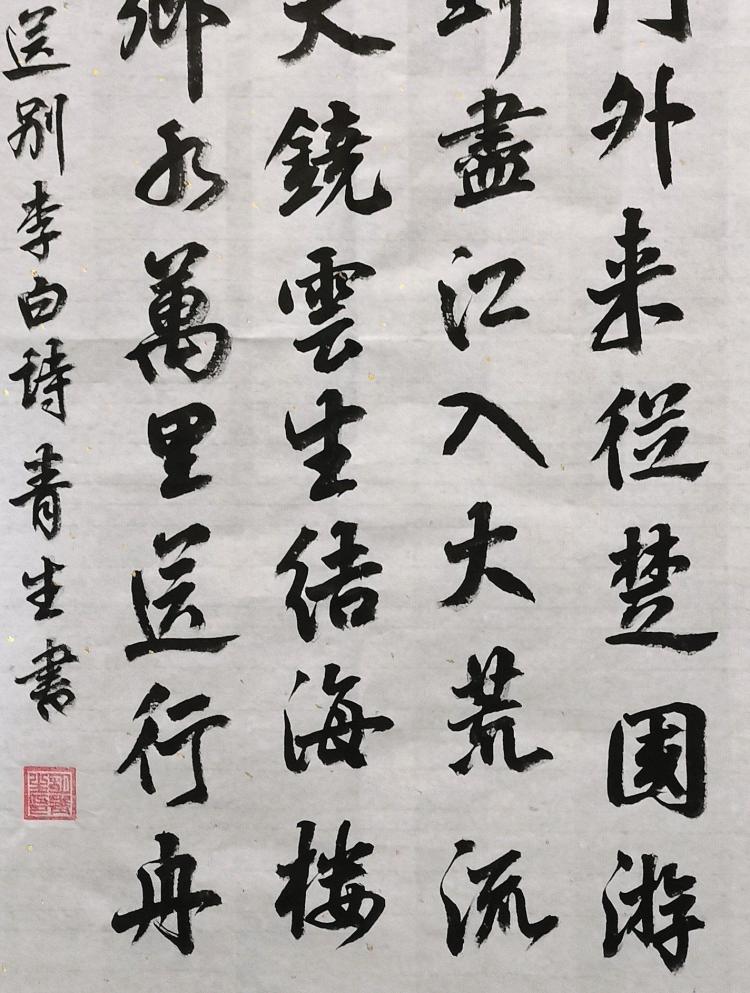 外来從楚國游
盡江入大荒流
天鏡雲生结海楼
鄉水萬里送行舟
送别李白诗青生書